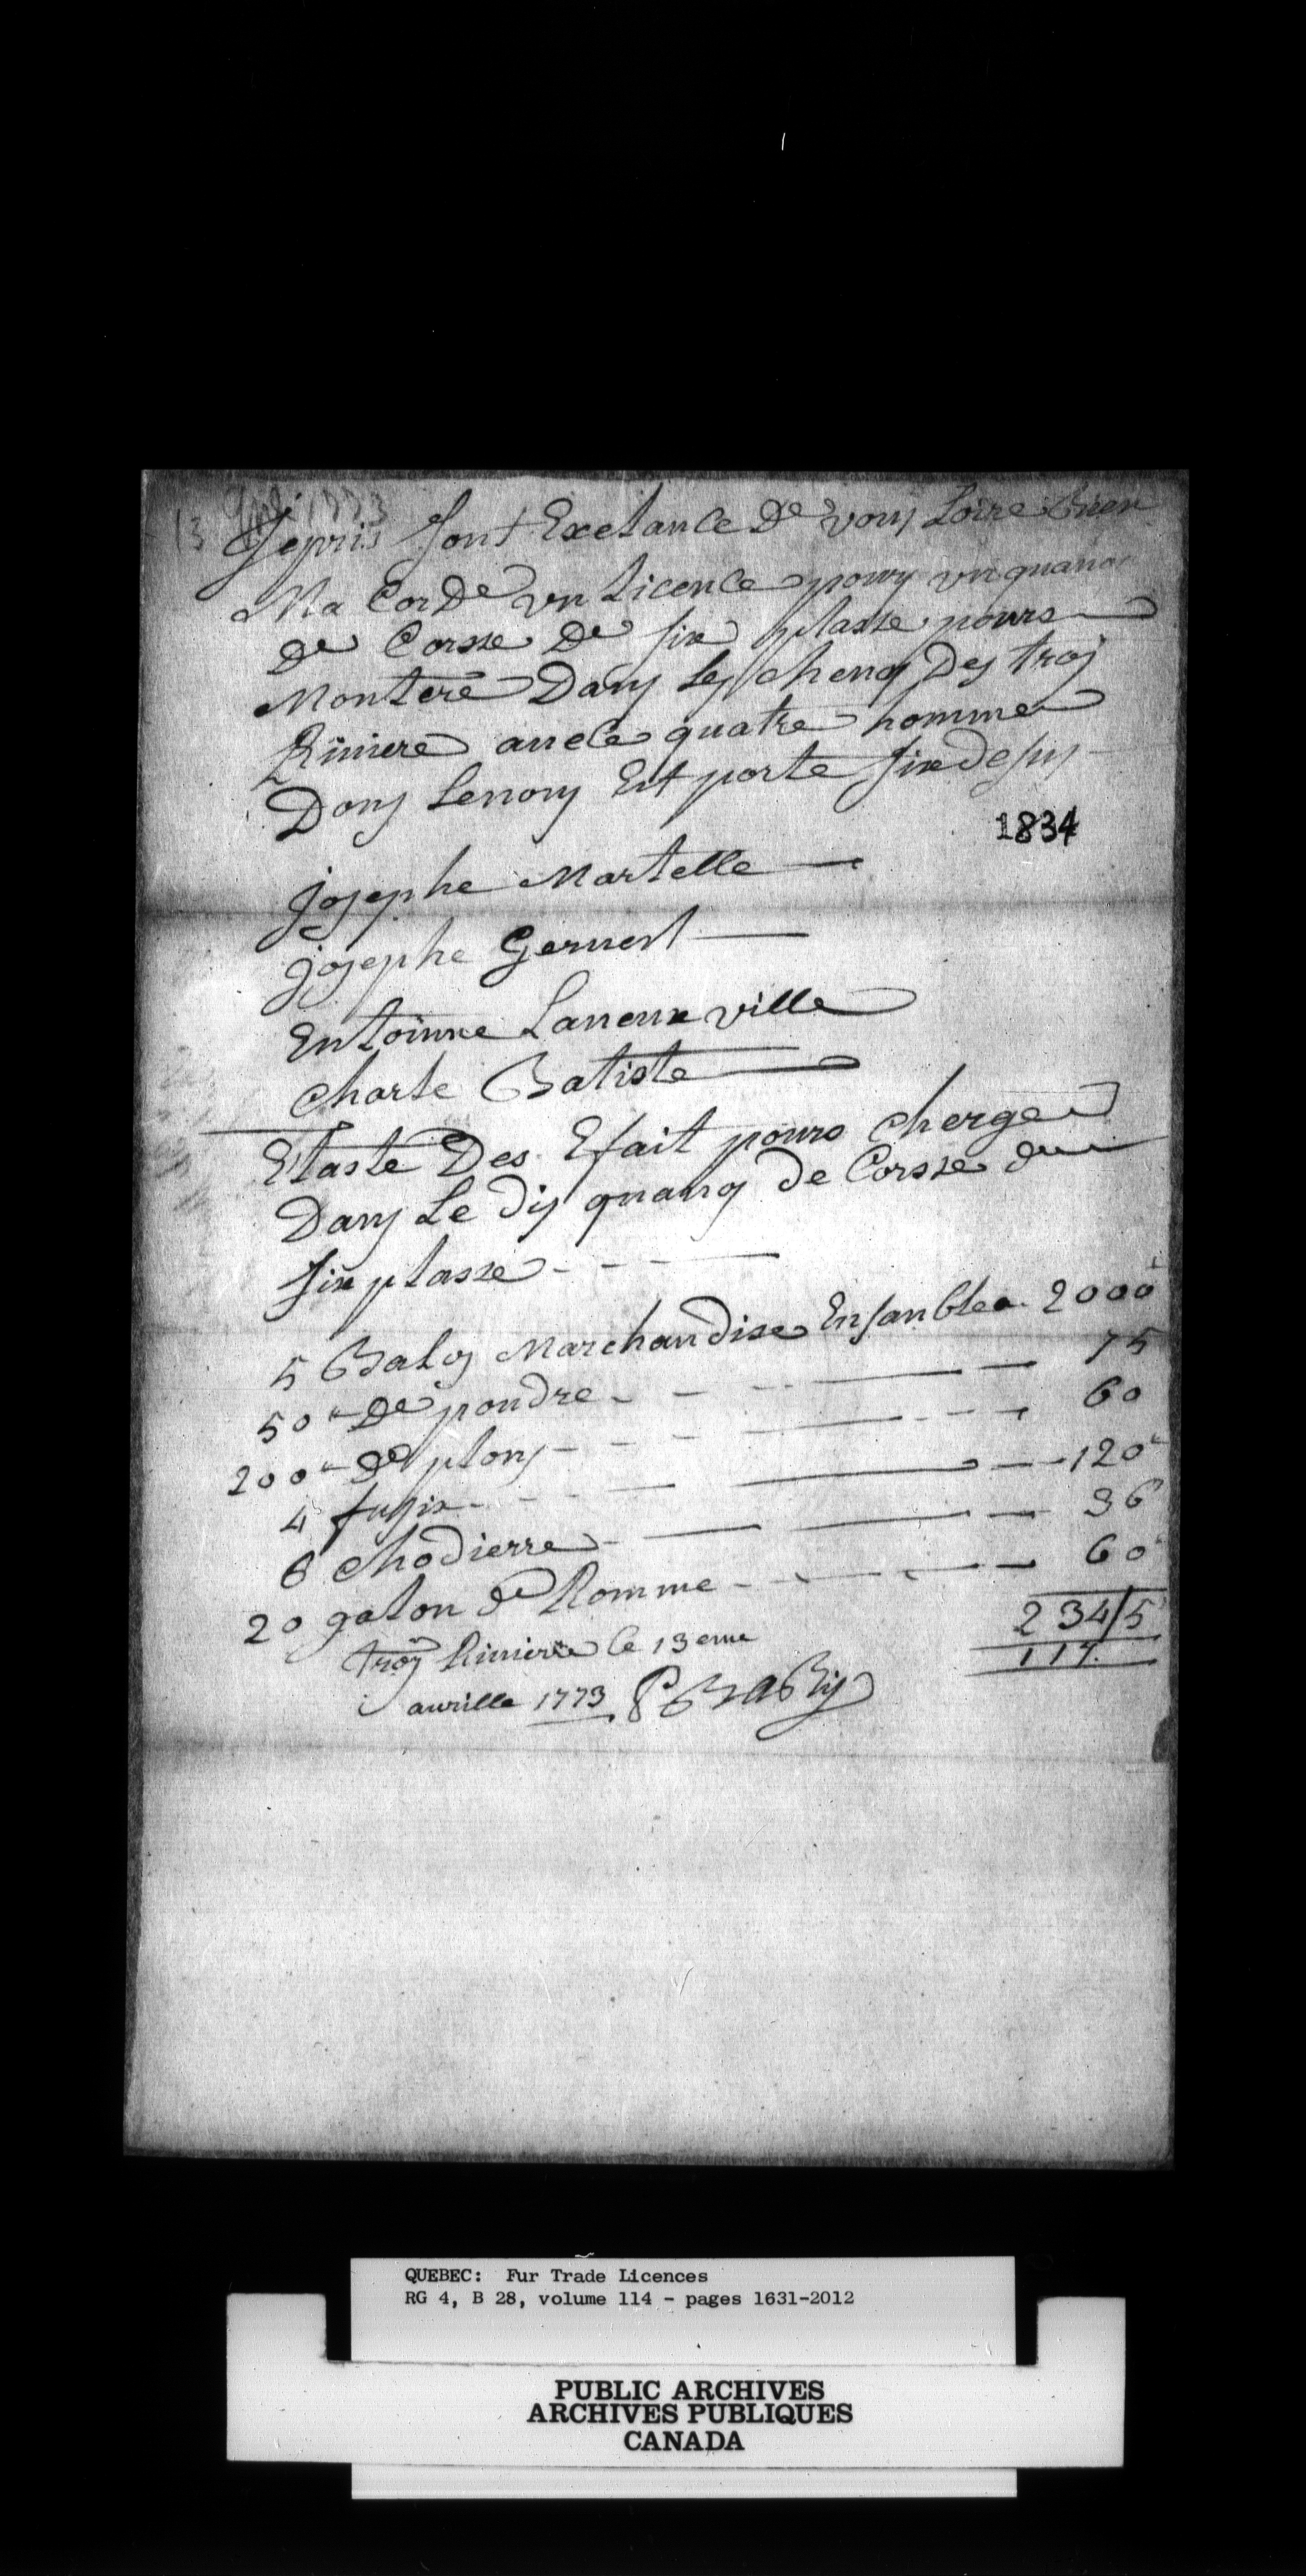 13 Apl 1773
Jepris Sont Exelance De vouj Loire bien
Ma CorDe un Licence pourj un quano
De Corsse De six plasse pours
Montere Danj Lej chenoj Dej troj
Riuiere auele quatre homme
Donj Lenonj Est porte sixdesuj
1834
josephe Martelle
josephe Geruest
Entoinne Laneuxville
Charle Batiste
Etaste Des Efait pours cherge
Danj Le dij quanoj de Corsse de
six plasse
5 Baloj Marchandise Ensamblea 2000
50 De poudre 75
200 De plonj 60
4 fusix 120
6 chodierre 36
20 galon de Romme 60
234/5
117
troj Riuiere le 13eme
aurille 1773 P BaBij
QUEBEC: Fur Trade Licences
RG 4, B 28, volume 114 - pages 1631-2012
PUBLIC ARCHIVES
ARCHIVES PUBLIQUES
CANADA